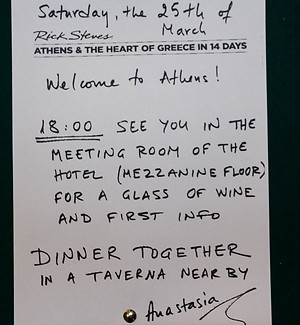 Saturday, the 25th of
March
Rick Steves
ATHENS & THE HEART OF GREECE IN 14 DAYS
Welcome to Athens!
18:00 SEE YOU IN THE
MEETING ROOM OF THE
HOTEL (MEZZANINE FLOOR)
FOR A GLASS OF WINE
AND FIRST INFO
DINNER TOGETHER
IN A TAVERNA NEAR BY
Anastasia